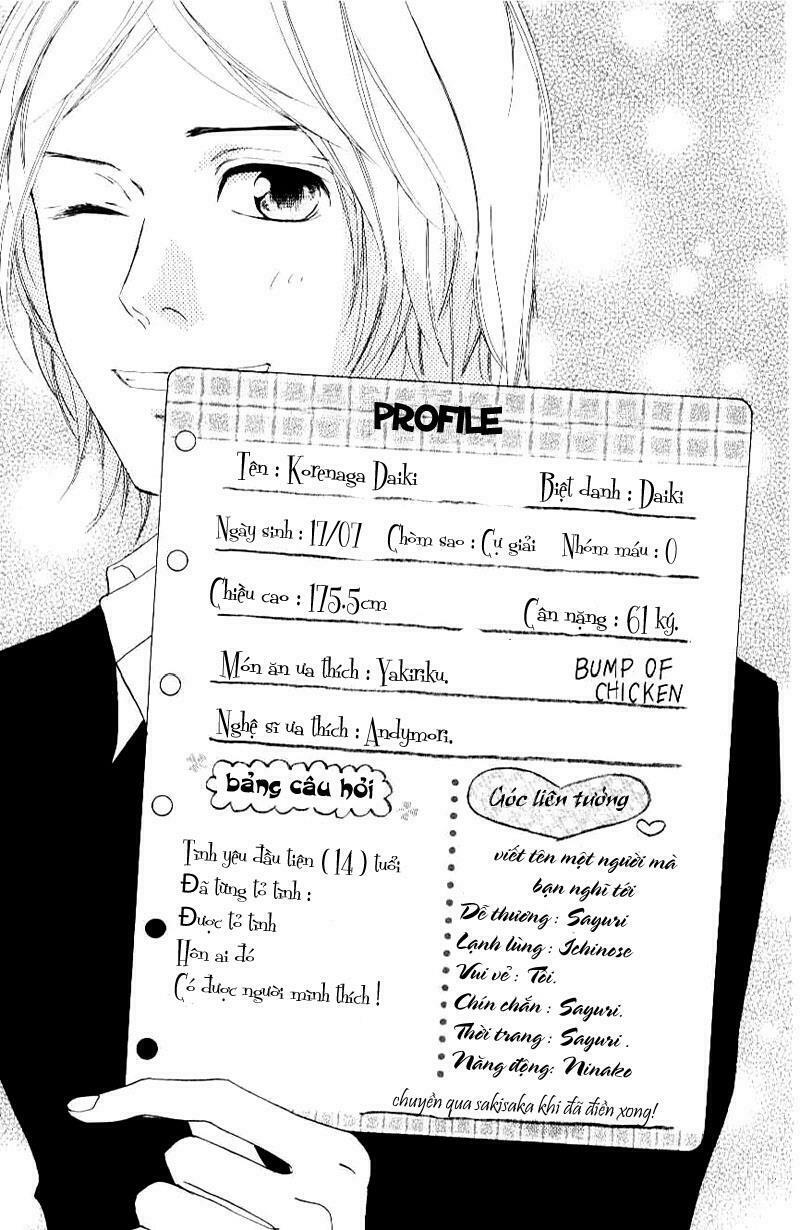 PROFILE
Tên : Korenaga Daiki Biệt danh : Daiki
Ngày sinh : 17/07 Chòm sao : Cự giải Nhóm máu : O
Chiều cao : 175.5cm Cân nặng : 61 ký.
Món ăn ưa thích : Yakiriku.
BUMP OF
CHICKEN
Nghệ sĩ ưa thích : Andymori.
bảng câu hỏi
Tình yêu đầu tiên ( 14 ) tuổi
Đã từng tỏ tình :
Được tỏ tình
Hôn ai đó
Có được người mình thích !
Góc liên tưởng
viết tên một người mà
bạn nghĩ tới
Dễ thương : Sayuri
Lạnh lùng : Ichinose
Vui vẻ : Tôi.
Chín chắn : Sayuri.
Thời trang : Sayuri .
Năng động: Ninako
chuyền qua sakisaka khi đã điền xong!